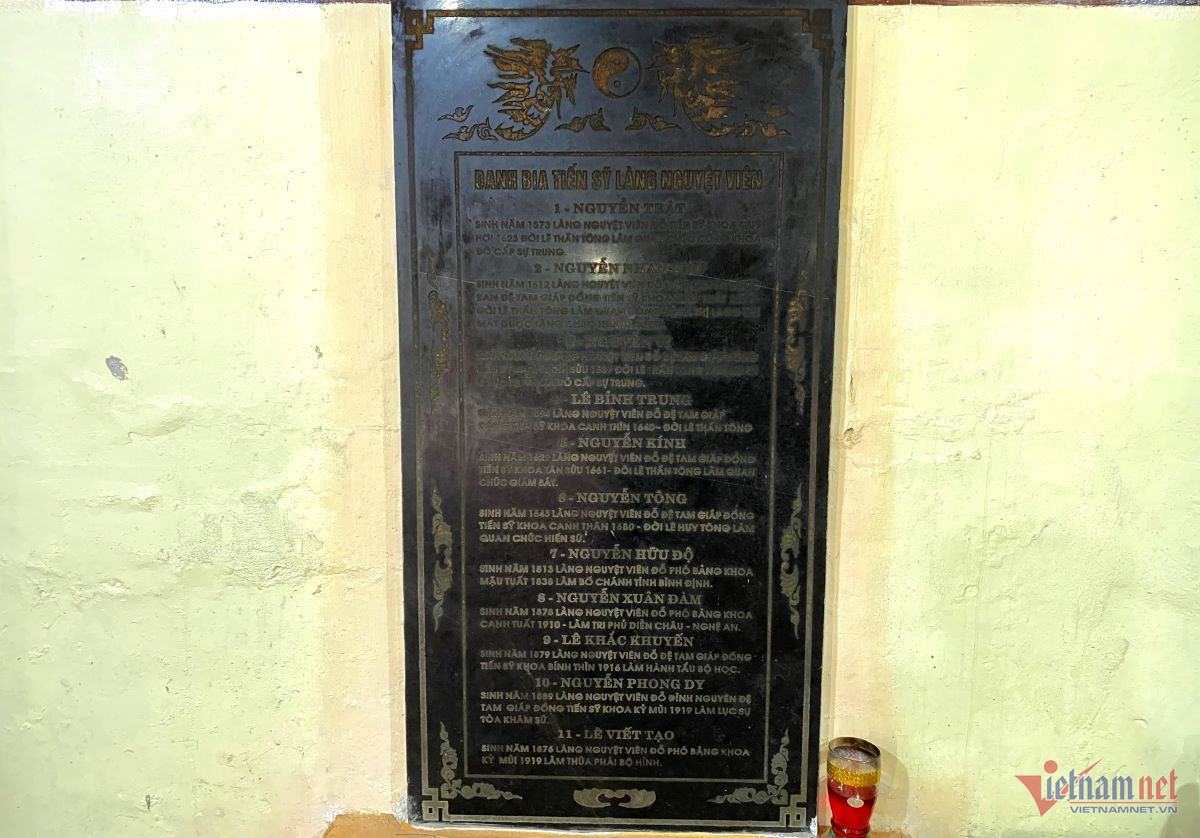 DANH BIA TIẾN SỸ LÀNG NGUYỆT VIÊN
1 - NGUYỄN TRẬT
SINH NĂM 1573 LÀNG NGUYỆT VIÊN ĐỖ TIẾN SỸ KHOA QUÝ
HỢI 1623 ĐỜI LÊ THẦN TÔNG LÀM QUAN KHOA
ĐÔ CẤP SỰ TRUNG.
2 - NGUYỄN
SINH NĂM 1612 LÀNG NGUYỆT VIÊN ĐỖ
BẢN ĐỆ TAM GIÁP ĐỒNG TIẾN SỸ KHOA
ĐỜI LÊ THẦN TÔNG LÀM QUAN
MẤT ĐƯỢC TẶNG CHỨC
NGUYỄN
NGUYỆT VIÊN ĐỖ ĐỆ TAM GIÁP ĐỒNG
SỬU 1637 ĐỜI LÊ THẦN TÔNG
ĐÔ CẤP SỰ TRUNG.
LÊ BỈNH TRUNG
LÀNG NGUYỆT VIÊN ĐỖ ĐỆ TAM GIÁP
SỸ KHOA CANH THÌN 1640- ĐỜI LÊ THẦN TÔNG
5 - NGUYỄN KÍNH
SINH NĂM 1629 LÀNG NGUYỆT VIÊN ĐỖ ĐỆ TAM GIÁP ĐỒNG
TIẾN SỸ KHOA TÂN SỬU 1661- ĐỜI LÊ THẦN TÔNG LÀM QUAN
CHỨC GIÁM SÁT.
6 - NGUYỄN TÔNG
SINH NĂM 1643 LÀNG NGUYỆT VIÊN ĐỖ ĐỆ TAM GIÁP ĐỒNG
TIẾN SỸ KHOA CANH THÂN 1680 - ĐỜI LÊ HUY TÔNG LÀM
QUAN CHỨC HIẾN SỨ.
7 - NGUYỄN HỮU ĐỘ
SINH NĂM 1813 LÀNG NGUYỆT VIÊN ĐỖ PHÓ BẢNG KHOA
MẬU TUẤT 1838 LÀM BỐ CHÁNH TỈNH BÌNH ĐỊNH.
8 - NGUYỄN XUÂN ĐÀM
SINH NĂM 1878 LÀNG NGUYỆT VIÊN ĐỖ PHÓ BẢNG KHOA
CANH TUẤT 1910 - LÀM TRI PHỦ DIỄN CHÂU - NGHỆ AN.
9 - LÊ KHẮC KHUYẾN
SINH NĂM 1879 LÀNG NGUYỆT VIÊN ĐỖ ĐỆ TAM GIÁP ĐỒNG
TIẾN SỸ KHOA BÍNH THÌN 1916 LÀM HÀNH TẨU BỘ HỌC.
10 - NGUYỄN PHONG DY
SINH NĂM 1889 LÀNG NGUYỆT VIÊN ĐỖ ĐÌNH NGUYÊN ĐỆ
TAM GIÁP ĐỒNG TIẾN SỸ KHOA KỶ MÙI 1919 LÀM LỤC SỰ
TÒA KHÂM SỨ.
11 - LÊ VIẾT TẠO
SINH NĂM 1876 LÀNG NGUYỆT VIÊN ĐỖ PHÓ BẢNG KHOA
KỶ MÙI 1919 LÀM THỪA PHÁI BỘ HÌNH.
Vietnamnet
VIETNAMNET.VN